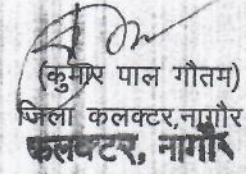 (कुमार पाल गौतम)
जिला कलक्टर,नागौर
कलक्टर, नागौर